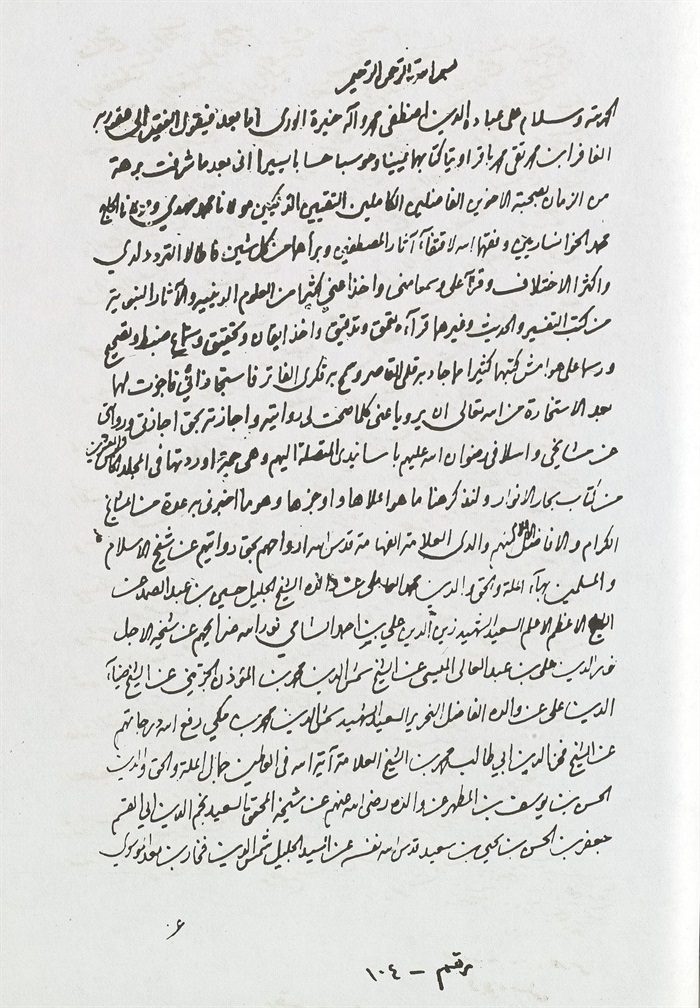 بسم الله الرحمن الرحيم
الحمد لله وسلام على عباده الذين اصطفى محمد وآله خيرة الورى اما بعد فيقول المفتقر الى عفو ربه
الغافر ابن محمد تقي محمد باقر اوتيا كتابهما يمينا وحوسبا حسابا يسيرا اني بعد ما شرفت برهة
من الزمان بصحبة الاخوين الفاضلين الكاملين التقيين الزكيين مولانا محمد مهدي و مولانا الحاج
محمد الخوانساريين وفقهما الله لاقتفاء آثار المصطفين وبرأهما من كل شين فاطالا التردد لدي
واكثرا الاختلاف وقرآ علي وسمعا مني واخذا عني كثيرا من العلوم الدينية والآثار النبوية
من كتب التفسير والحديث وغيرها قراءة تعمق وتدقيق واخذ ايقان وتحقيق وسماع ضبط وتصحيح
ورسما على هوامش كتبهما كثيرا مما جاد به قلمي القاصر وسمح به فكري الفاتر فاستجازاني فاجزت لهما
بعد الاستخارة من الله تعالى ان يرويا عني كلما صحت لي روايته واجازته بحق اجازتي وروايتي
عن مشايخي واسلافي رضوان الله عليهم باسانيدي المتصلة اليهم وهي جمة اوردتها في المجلد الخامس والعشرين
من كتاب بحار الانوار ولنذكر هنا ما هو اعلاها واوجزها وهو ما اخبرني به عدة من المشايخ
الكرام والافاضل الاعلام منهم والدي العلامة الفهامة قدس الله ارواحهم بحق روايتهم عن شيخ الاسلام
والمسلمين بهاء الملة والحق والدين محمد العاملي عن والده الشيخ الجليل حسين بن عبد الصمد عن
الشيخ الاعظم الاعلم السعيد الشهيد زين الدين علي بن احمد الشامي نور الله ضرايحهم عن شيخه الاجل
نور الدين علي بن عبد العالي الميسي عن الشيخ شمس الدين محمد بن المؤذن الجزيني عن الشيخ ضياء
الدين علي عن والده الفاضل النحرير السعيد الشهيد شمس الدين محمد بن مكي رفع الله درجاتهم
عن الشيخ فخر الدين ابي طالب محمد بن الشيخ العلامة آية الله في العالمين جمال الملة والحق والدين
الحسن بن يوسف بن المطهر عن والده رضي الله عنهم عن شيخه المحقق السعيد نجم الدين ابي القسم
جعفر بن الحسن بن يحيى بن سعيد قدس الله نفسه عن السيد الجليل شمس الدين فخار بن معد الموسوي
٠٦
برقم - ١٠٤